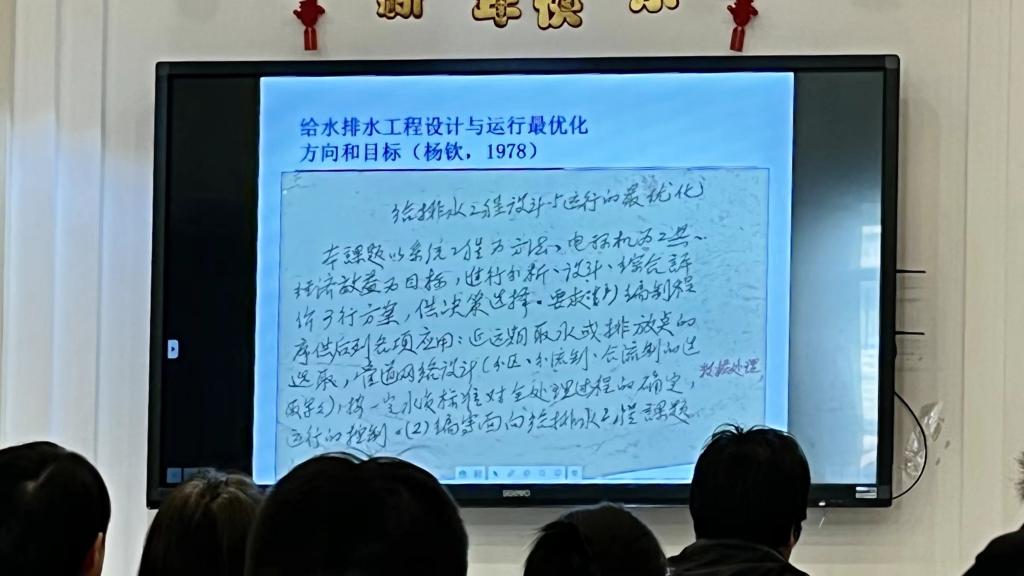 新年慎
给水排水工程设计与运行最优化
方向和目标（杨钦，1978）
给排水工程设计与运行的最优化
本課題以系统工程为方法、电子计算机为工具、
经济效益为目标，进行分析、设计、综合評
价可行方案，供决策选择。要求(1)编制程
序供后列各项应用：近远期取水或排放点的
选取，管道网络设计(分区、分流制、合流制的选
按一定水质标准对全处理过程的确定，数据处理
运行的控制。(2)编写面向给排水工程課題